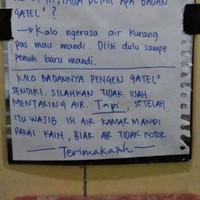 DEMI APA BADAN
GATEL² ?
→ Kalo ngerasa air kurang
pas mau mandi. Diisi dulu sampe
penuh baru mandi.
KALO BADANNYA PENGEN GATEL²
SENDIRI. SILAHKAN TIDAK USAH
MENYARING AIR. Tapi, SETELAH
ITU WAJIB ISI AIR KAMAR MANDI
PAKAI KAIN, BIAR AIR TIDAK KOTOR
- Terimakasih -